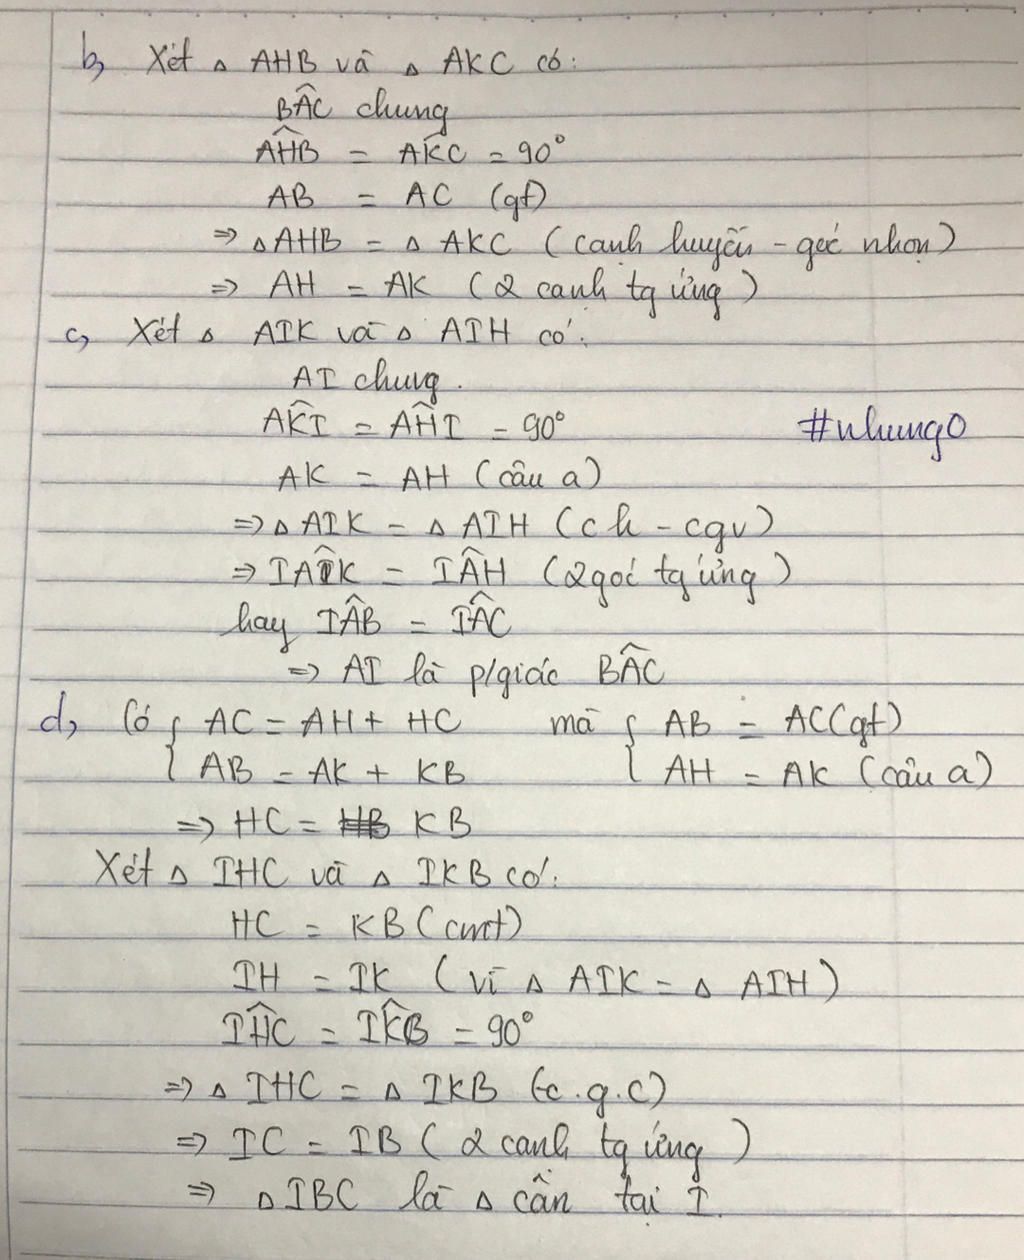 b, Xét △ AHB và △ AKC có:
BÂC chung
AĤB = AK̂C = 90°
AB = AC (gt)
⇒ △AHB = △ AKC (cạnh huyền - góc nhọn)
⇒ AH = AK (2 cạnh tg ứng)
c, Xét △ AIK và △ AIH có:
AI chung.
AK̂I = AĤI = 90°
#nhung0
AK = AH (câu a)
⇒ △ AIK = △ AIH (ch - cgv)
⇒ IÂK = IÂH (2 góc tg ứng)
hay IÂB = IÂC
⇒ AI là p/giác BÂC
d, Có { AC = AH + HC mà { AB = AC (gt)
{ AB = AK + KB { AH = AK (câu a)
⇒ HC = KB
Xét △ IHC và △ IKB có:
HC = KB (cmt)
IH = IK (vì △ AIK = △ AIH)
IĤC = IK̂B = 90°
⇒ △ IHC = △ IKB (c.g.c)
⇒ IC = IB (2 cạnh tg ứng)
⇒ △IBC là △ cân tại I.